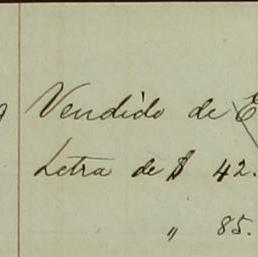 Vendido de E
Letra de $ 42.
" 85.